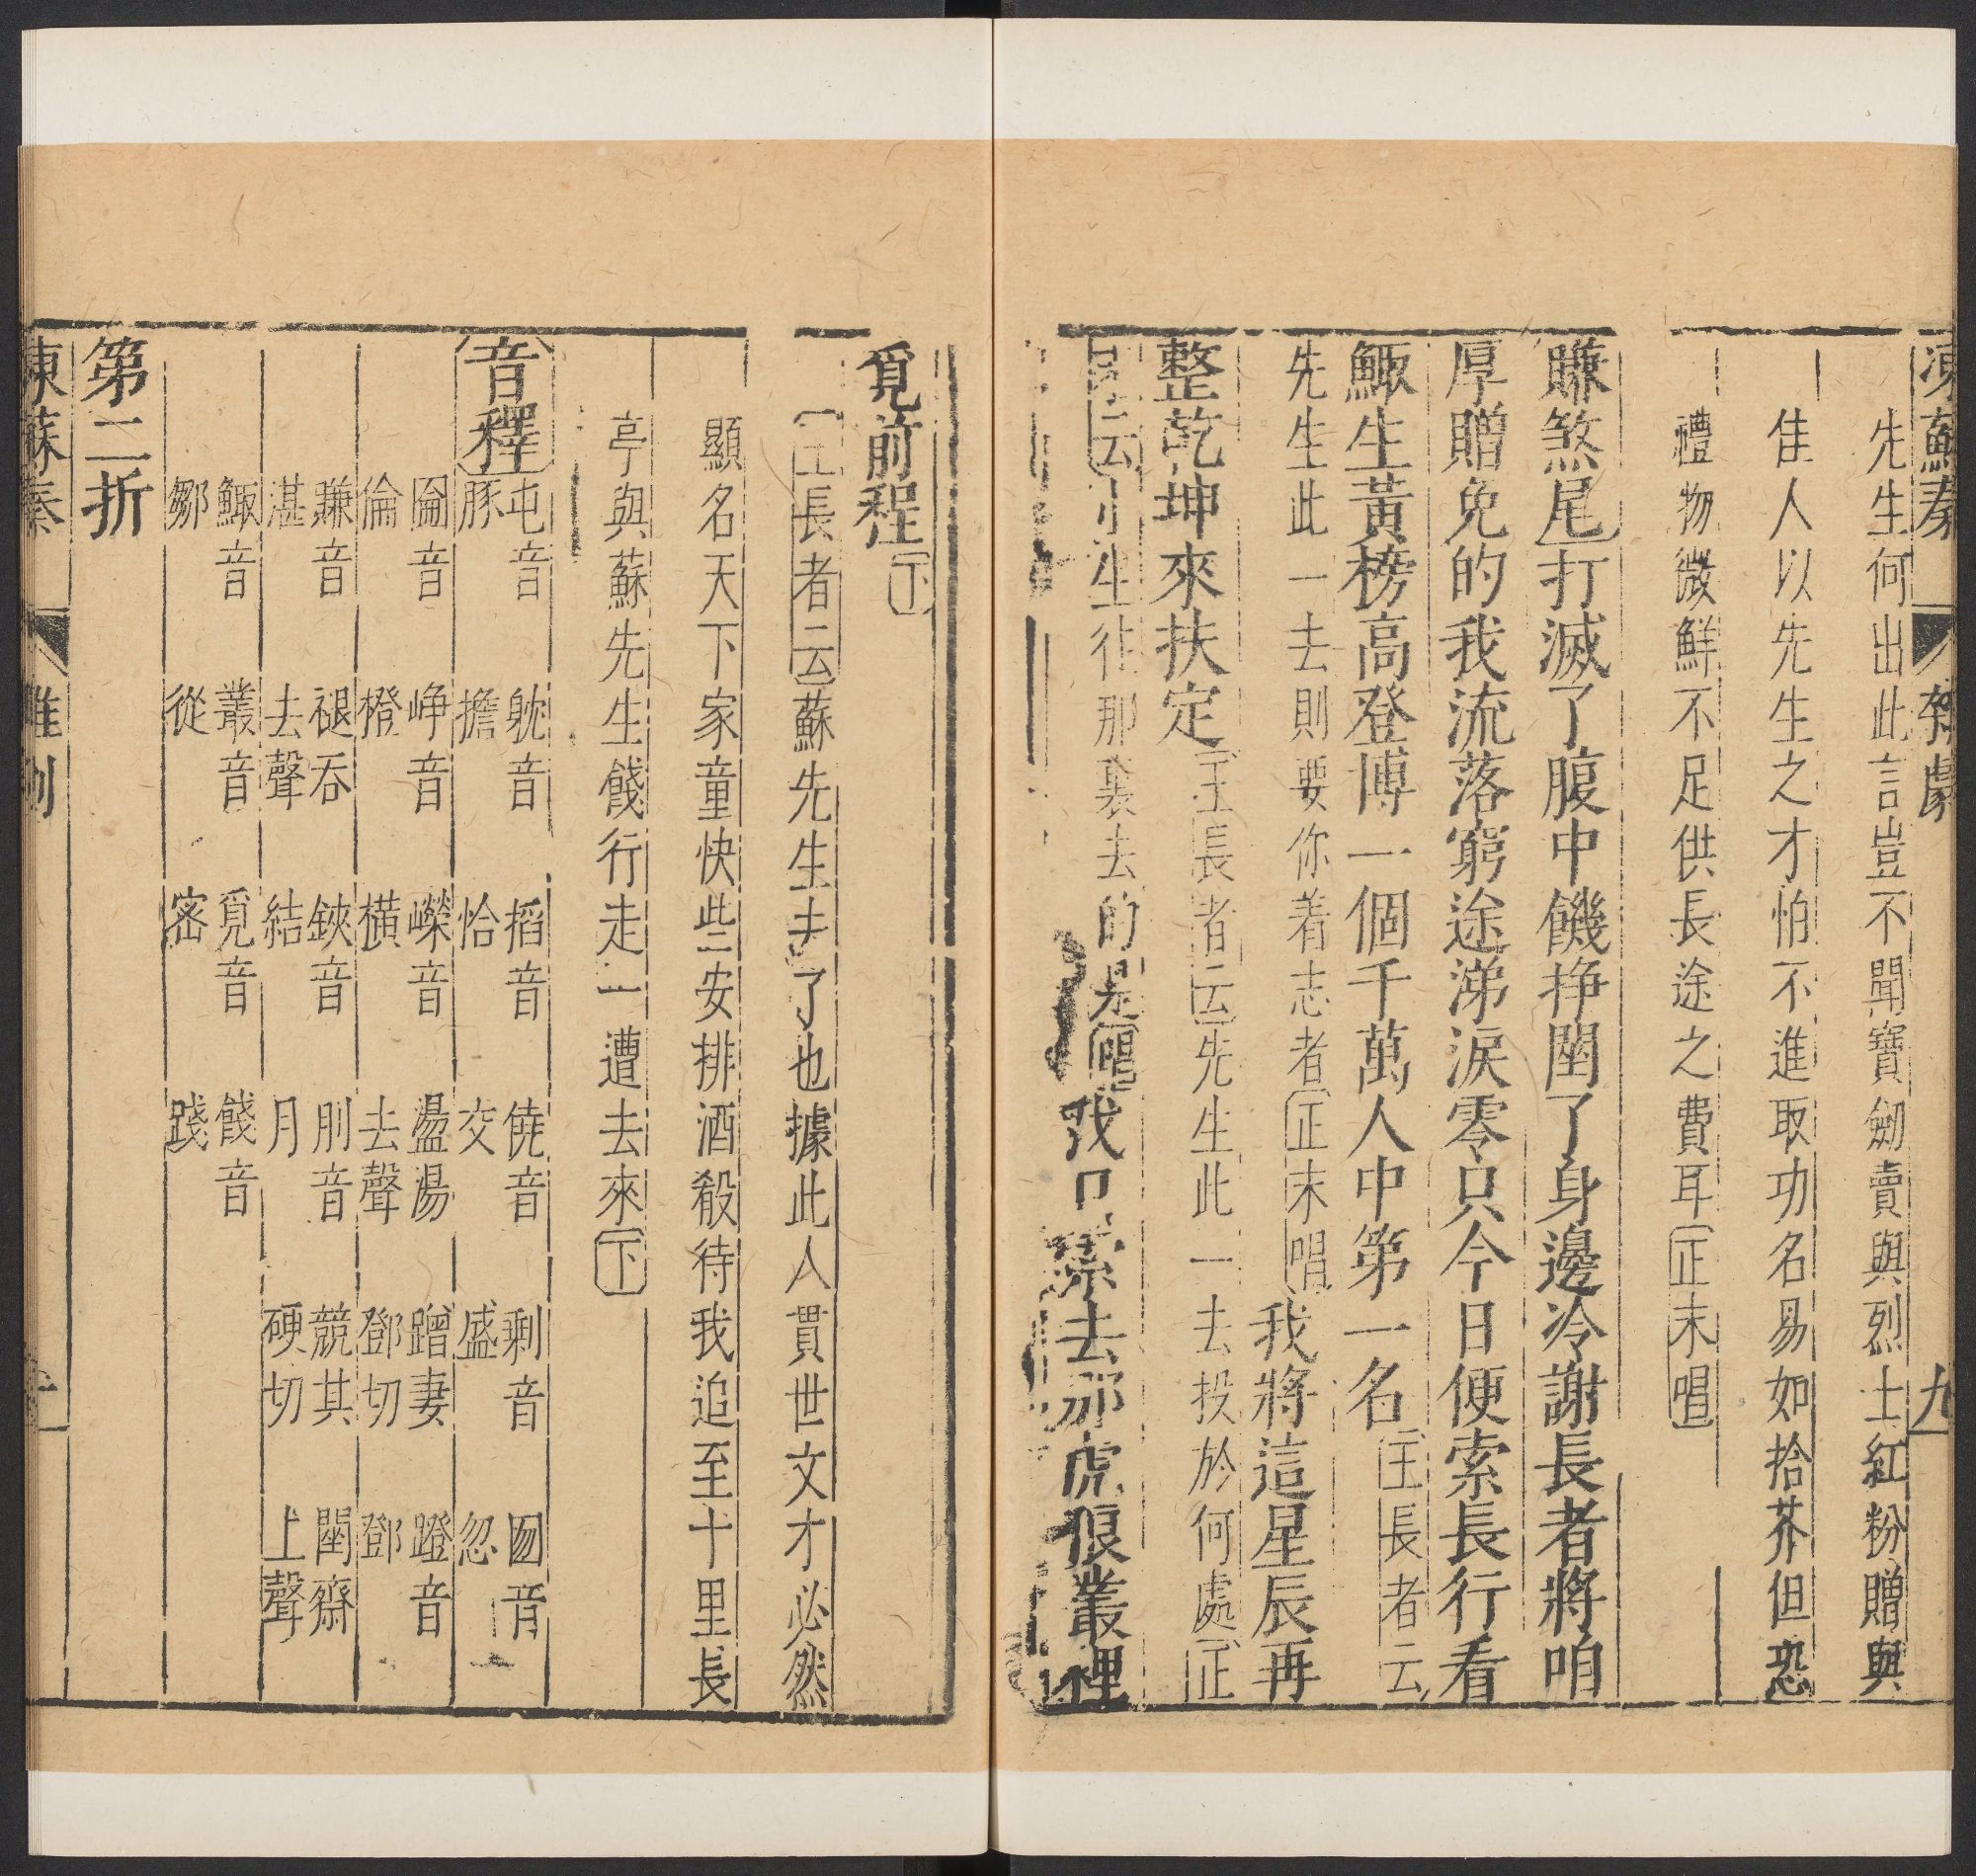 凍蘇秦 雜劇 九
先生何出此言豈不聞寶劒賣與烈士紅粉贈與
佳人以先生之才怕不進取功名易如拾芥但恐
禮物微鮮不足供長途之費耳正末唱
賺煞尾打滅了腹中饑挣𨶹了身邊冷謝長者將咱
厚贈免的我流落窮途涕淚零只今日便索長行看
鯫生黃榜高登博一個千萬人中第一名王長者云
先生此一去則要你着志者正末唱我將這星辰再
整乾坤來扶定王長者云先生此一去投於何處正
末云小生往那裏去的是唱我只索去那虎狼叢裡
覓前程下
王長者云蘇先生去了也據此人貫世文才必然
顯名天下家童快些安排酒殽待我追至十里長
亭與蘇先生餞行走一遭去來下
音釋 屯音豚 躭音擔 掐音恰 僥音交 剩音盛 囫音忽
圇音倫 崢音橙 嶸音橫 盪湯去聲 蹭妻鄧切 蹬音鄧
賺音湛 褪吞去聲 鋏音結 刖音月 競其硬切 𨶹齋上聲
鯫音鄒 叢音從 覓音密 餞音踐
第二折
凍蘇秦 雜劇